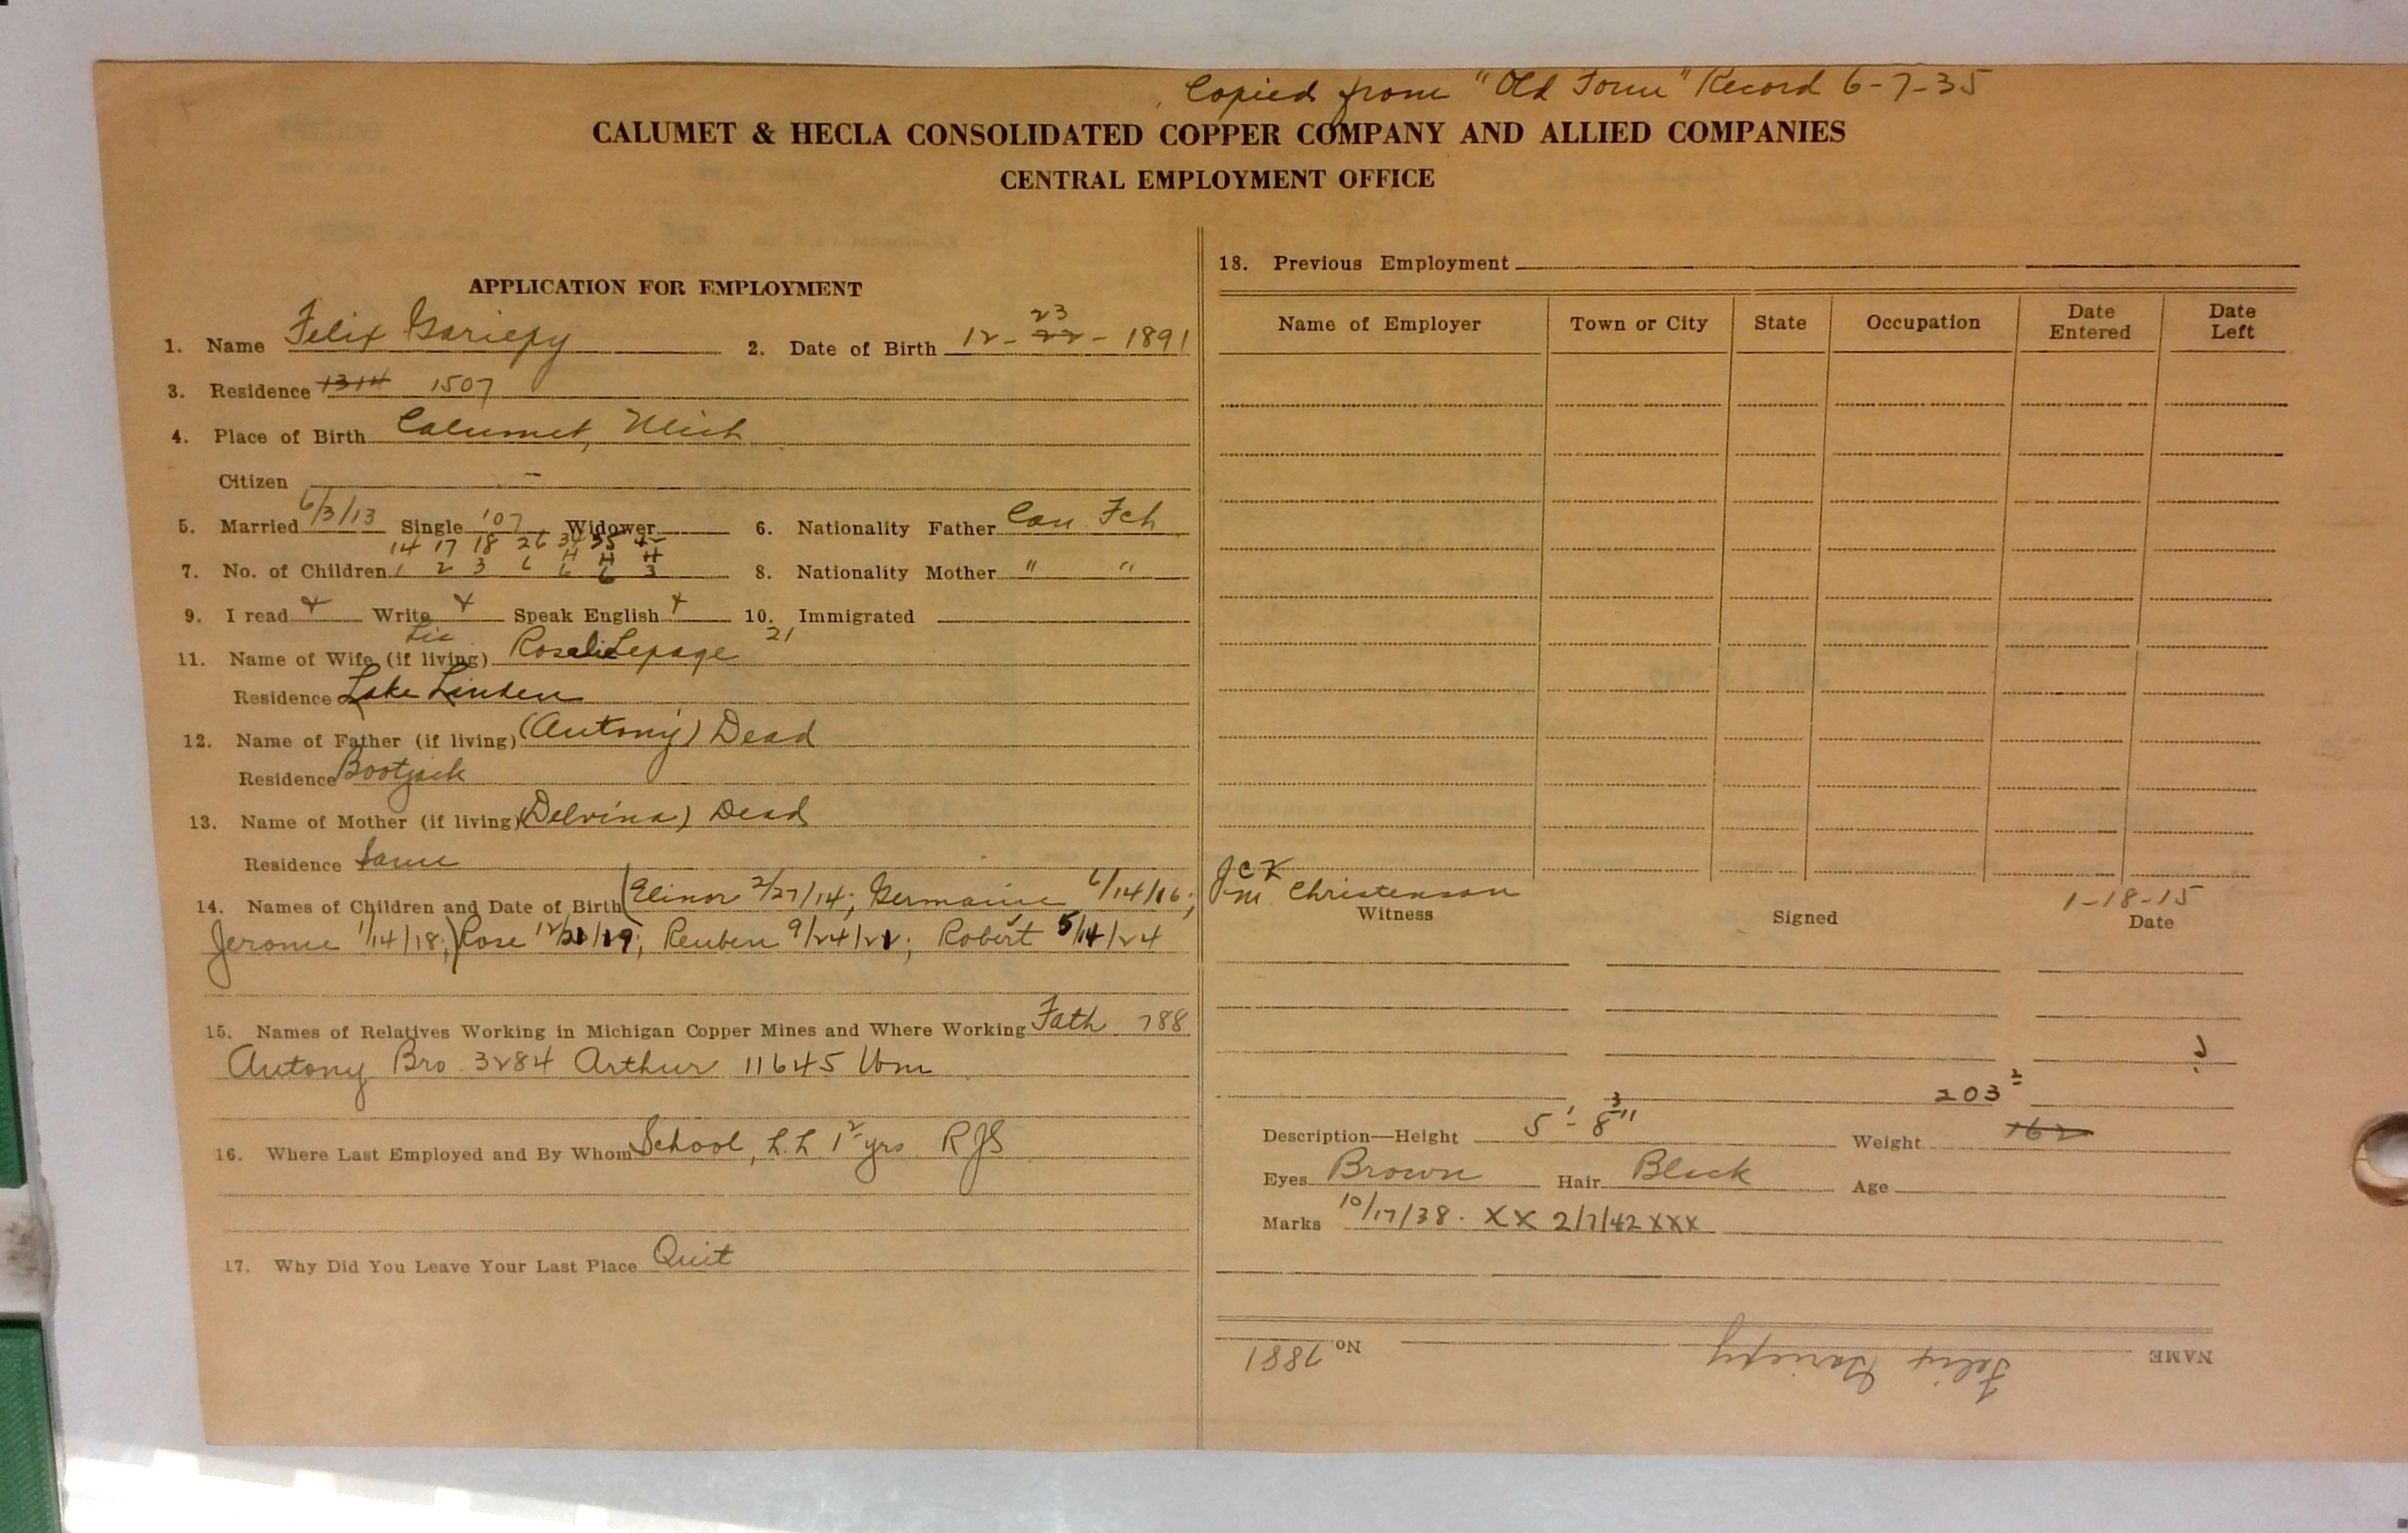 Copied from "Old Form" Record 6-7-35
CALUMET & HECLA CONSOLIDATED COPPER COMPANY AND ALLIED COMPANIES
CENTRAL EMPLOYMENT OFFICE
APPLICATION FOR EMPLOYMENT
1. Name Felix Gariepy 2. Date of Birth 12-22-1891
23
3. Residence 1314 1507
4. Place of Birth Calumet, Mich
Citizen -
5. Married 6/3/13 Single '07 Widower 6. Nationality Father Can Fch
14 17 18 26 34 35 45
H H H
7. No. of Children 1 2 3 6 6 6 3 8. Nationality Mother " "
9. I read x Write x Speak English x 10. Immigrated
21
11. Name of Wife (if living) Rosalie Lepage
Residence Lake Linden
12. Name of Father (if living) (Antony) Dead
Residence Bootjack
13. Name of Mother (if living) (Delvina) Dead
Residence Same
14. Names of Children and Date of Birth (Elinor 2/27/14; Germaine 6/14/16;
Jerome 1/14/18;) Rose /19; Reuben 9/24/21; Robert 5/14/24
15. Names of Relatives Working in Michigan Copper Mines and Where Working Fath 788
Antony Bro 3284 Arthur 11645 Wm
16. Where Last Employed and By Whom School, L.L. 1 2 yrs RJS
17. Why Did You Leave Your Last Place Quit
18. Previous Employment
Name of Employer Town or City State Occupation Date Entered Date Left
JCK
M Christenson 1-18-15
Witness Signed Date
203 2
3
Description—Height 5'-8" Weight 162
Eyes Brown Hair Black Age
Marks 10/17/38. XX 2/7/42 XXX
NAME Felix Gariepy No. 7881